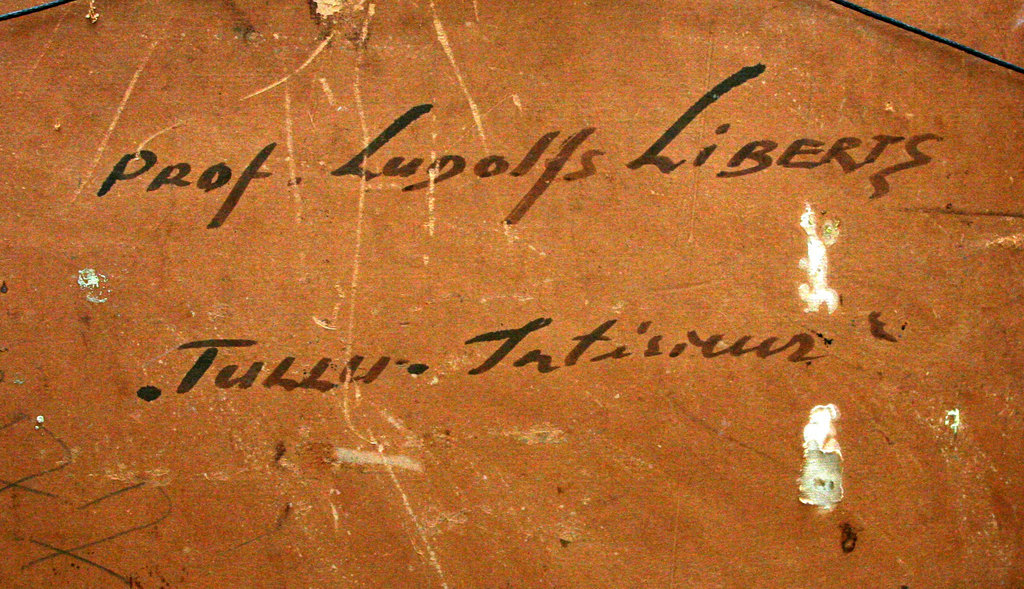 PROF. LUDOLFS LIBERTS
. TULLU . Interieur